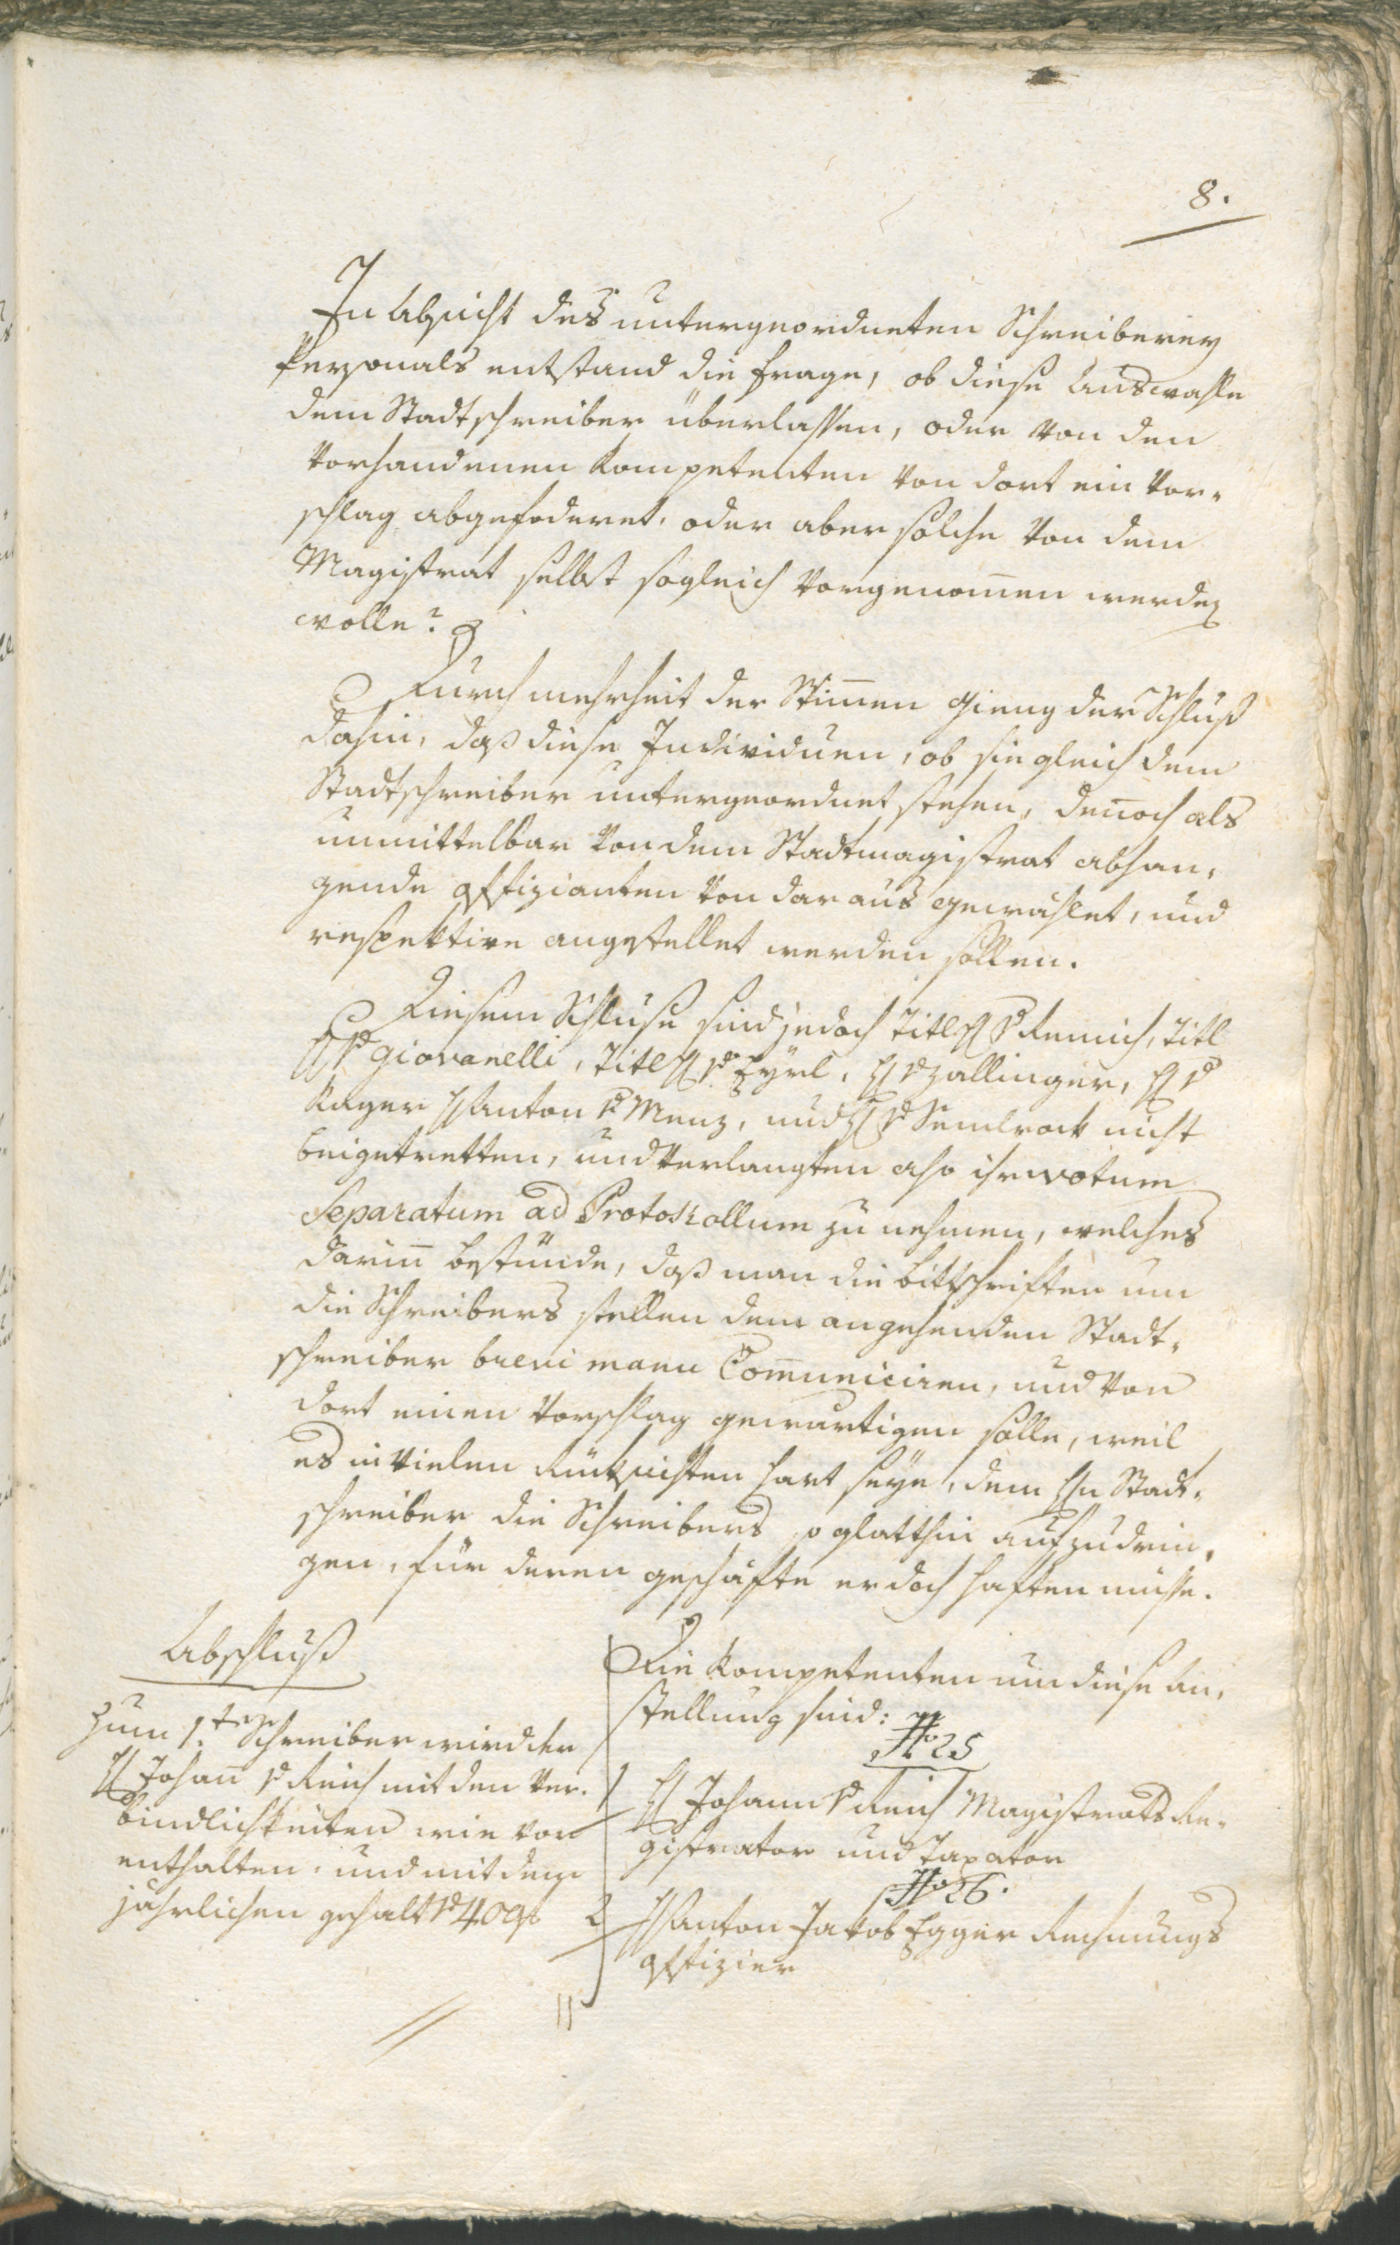 8.
In Absicht des untergeordneten Schreiberey
Personals entstand die Frage, ob diese Auswahle
dem Stadtschreiber überlassen, oder von den
vorhandenen Kompetenten von dort ein Vor-
schlag abgefoderet, oder aber solche von dem
Magistrat selbst sogleich vorgenom̄en werden
wolle?
Durch mehrheit der Stim̄en gieng der Schluß
dahin, daß diese Individuen, ob sie gleich dem
Stadtschreiber untergeordnet stehen, den̄och als
unmittelbar von dem Stadtmagistrat abhan-
gende Offizianten von daraus gewählet, und
respektive angestellet werden sollen.
Diesem Schluße sind jedoch Titl H v Remich, Titl
H v Giovanelli, Titl H v Eyrl, H v Zallinger, H v
Kager H Anton v Menz, und H v Semlrock nicht
beigetretten, und verlangten also ihr votum
Separatum ad Protokollum zu nehmen, welches
darin̄ bestünde, daß man die bittschriften um
die Schreibers stellen dem angehenden Stadt-
schreiber brevi manu Com̄uniciren, und von
dort einen Vorschlag gewärtigen solle, weil
es in vielen Rücksichten hart seye, dem H̄n Stadt-
schreiber die Schreibers so glatthin aufzudrin-
gen, für deren geschäfte er doch haften müsse.
Abschluß
Zum 1.t Schreiber wird der
H Johan̄ v Reich mit den Ver-
bindlichkeiten wie vor
enthalten, und mit dem
jährlichen gehalt v 400 f
Die Kompetenten um diese An-
stellung sind:
No 25
1 H Johann v Reich Magistrats Re-
gistrator und Taxator
No 26.
2 H Anton Jakob Egger Rechnungs
Offizier